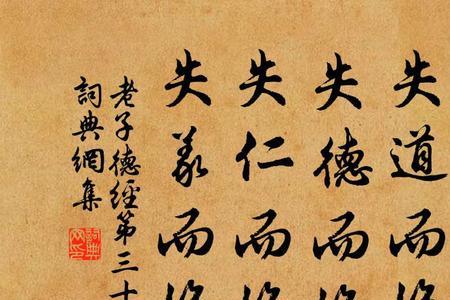 失道而
失德而
失仁而
失義而
老子德經第三十
詞典網集